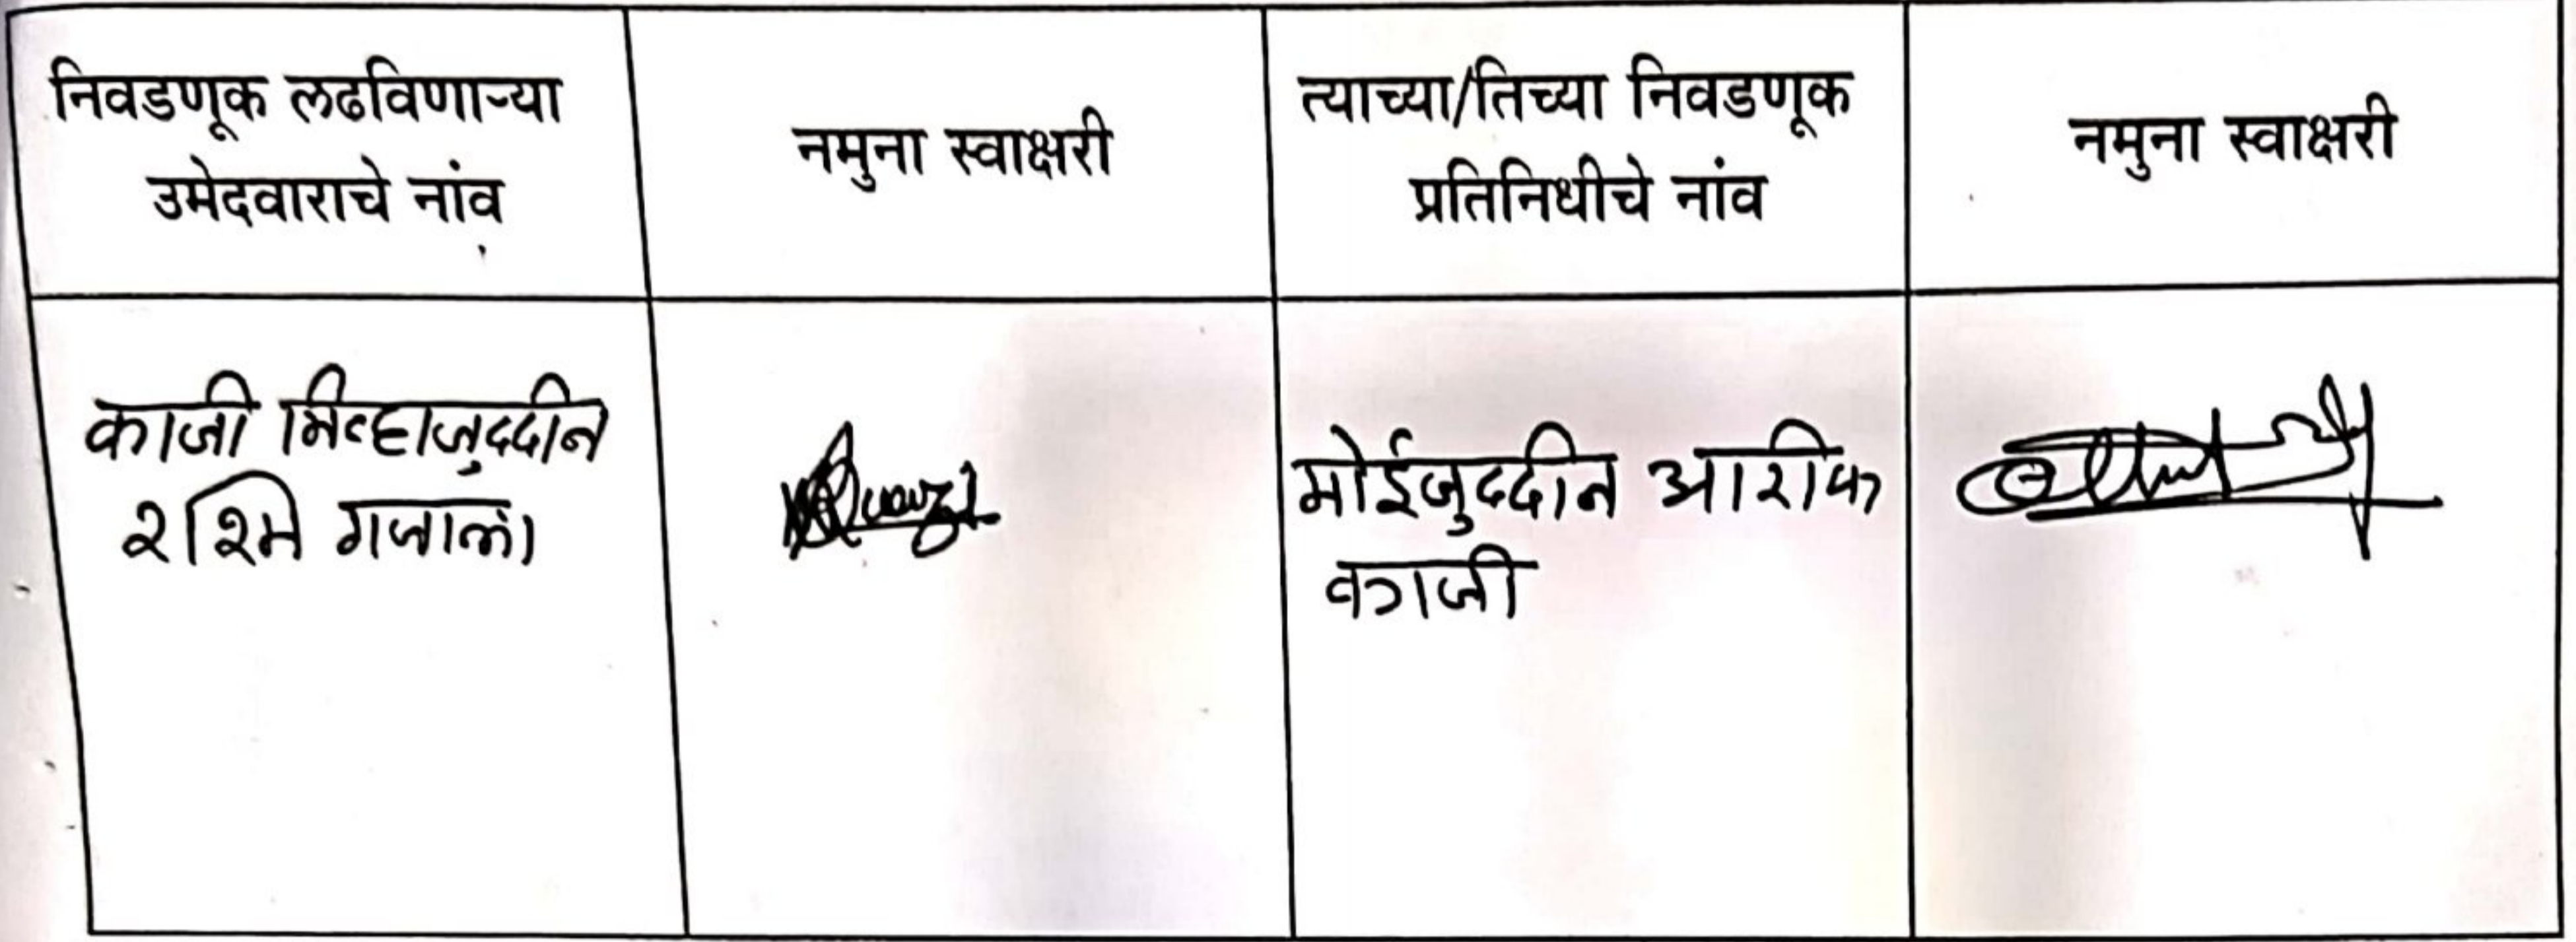 निवडणूक लढविणाऱ्या
उमेदवाराचे नांव
नमुना स्वाक्षरी
त्याच्या/तिच्या निवडणूक
प्रतिनिधीचे नांव
नमुना स्वाक्षरी
काजी मिन्हाजुद्दीन
रश्मि गजाला
मोईजुद्दीन आरीफ
काजी